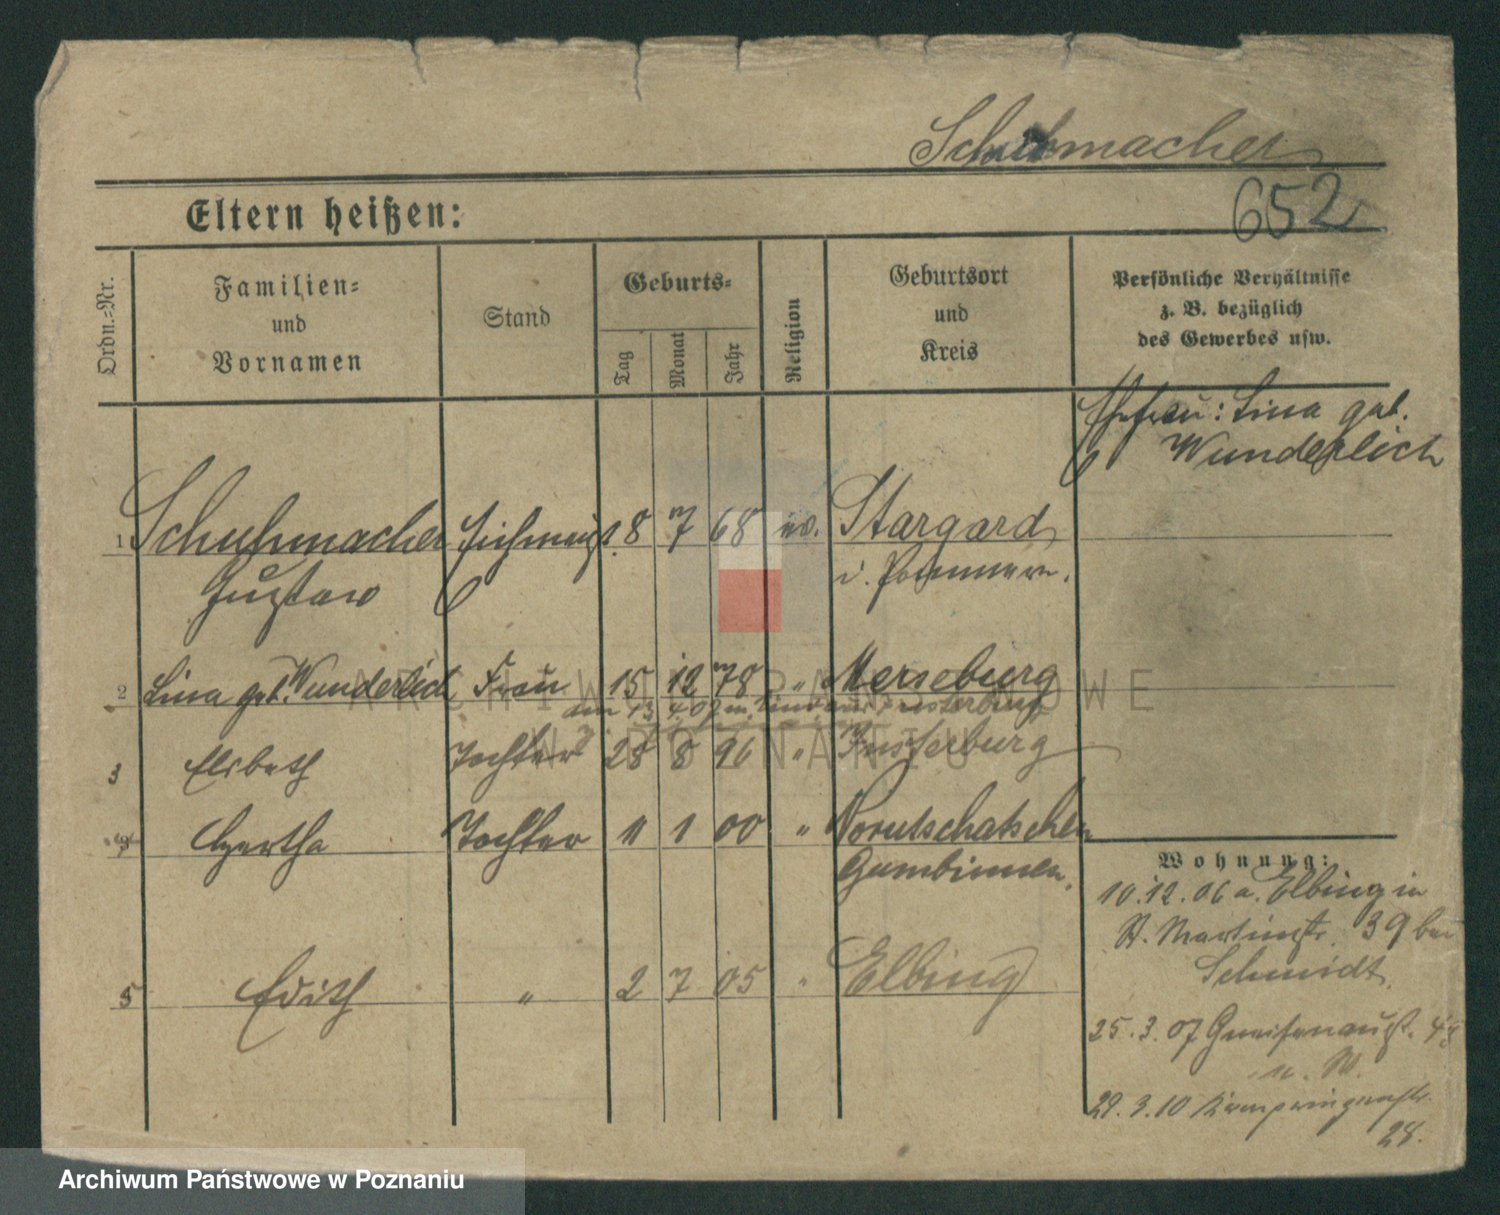 Schuhmacher
652
Eltern heißen:
Ordn.=Nr.
Familien=
und
Vornamen
Stand
Geburts=
Tag
Monat
Jahr
Religion
Geburtsort
und
Kreis
Persönliche Verhältnisse
z. B. bezüglich
des Gewerbes usw.
Ehefrau: Lina geb.
Wunderlich
1 Schuhmacher 8 7 68 ev. Stargard
Gustav i. Pommern.
2 Lina geb. Wunderlich Frau 15 12 78 " Merseburg
3 Elsbeth Tochter 28 8 96 " Insterburg
4 Hertha Tochter 11 1 00 "
Gumbinnen.
5 Edith " 2 7 05 " Elbing
Wohnung:
10.12.06 a. Elbing in
St. Martinstr. 39 bei
Schmidt
25.3.07 Gneisenaustr.
29.3.10 Kronprinzenstr.
28.
ARCHIWUM PAŃSTWOWE
W POZNANIU
Archiwum Państwowe w Poznaniu